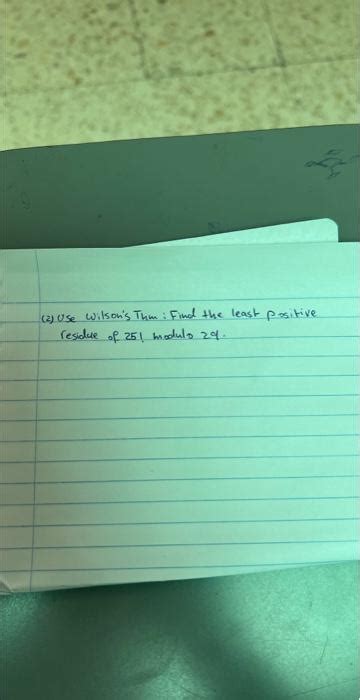 (2) Use Wilson's Thm : Find the least positive
residue of 25! modulo 29.